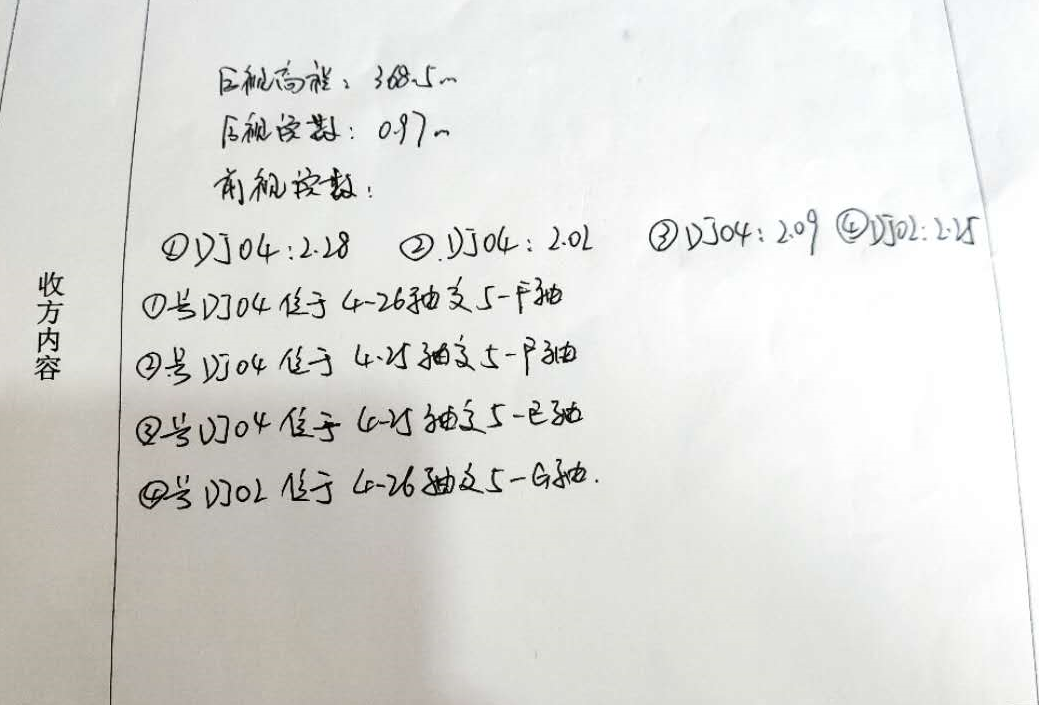 后视高程：368.5m
后视读数：0.97m
前视读数：
①DJ04:2.28 ②.DJ04：2.02 ③DJ04：2.09 ④DJ02:2.25
①号DJ04位于4-26轴交5-F轴
②号DJ04位于4-25轴交5-F轴
③号DJ04位于4-25轴交5-E轴
④号DJ02位于4-26轴交5-G轴.
收方内容